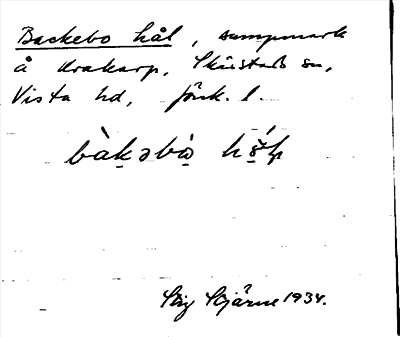 Backebo hål, sumpmark
å Krakarp, Skärstads sn,
Vista hd, Jönk. l.
bàkəbò hǻl
Stig Stjärne 1934.